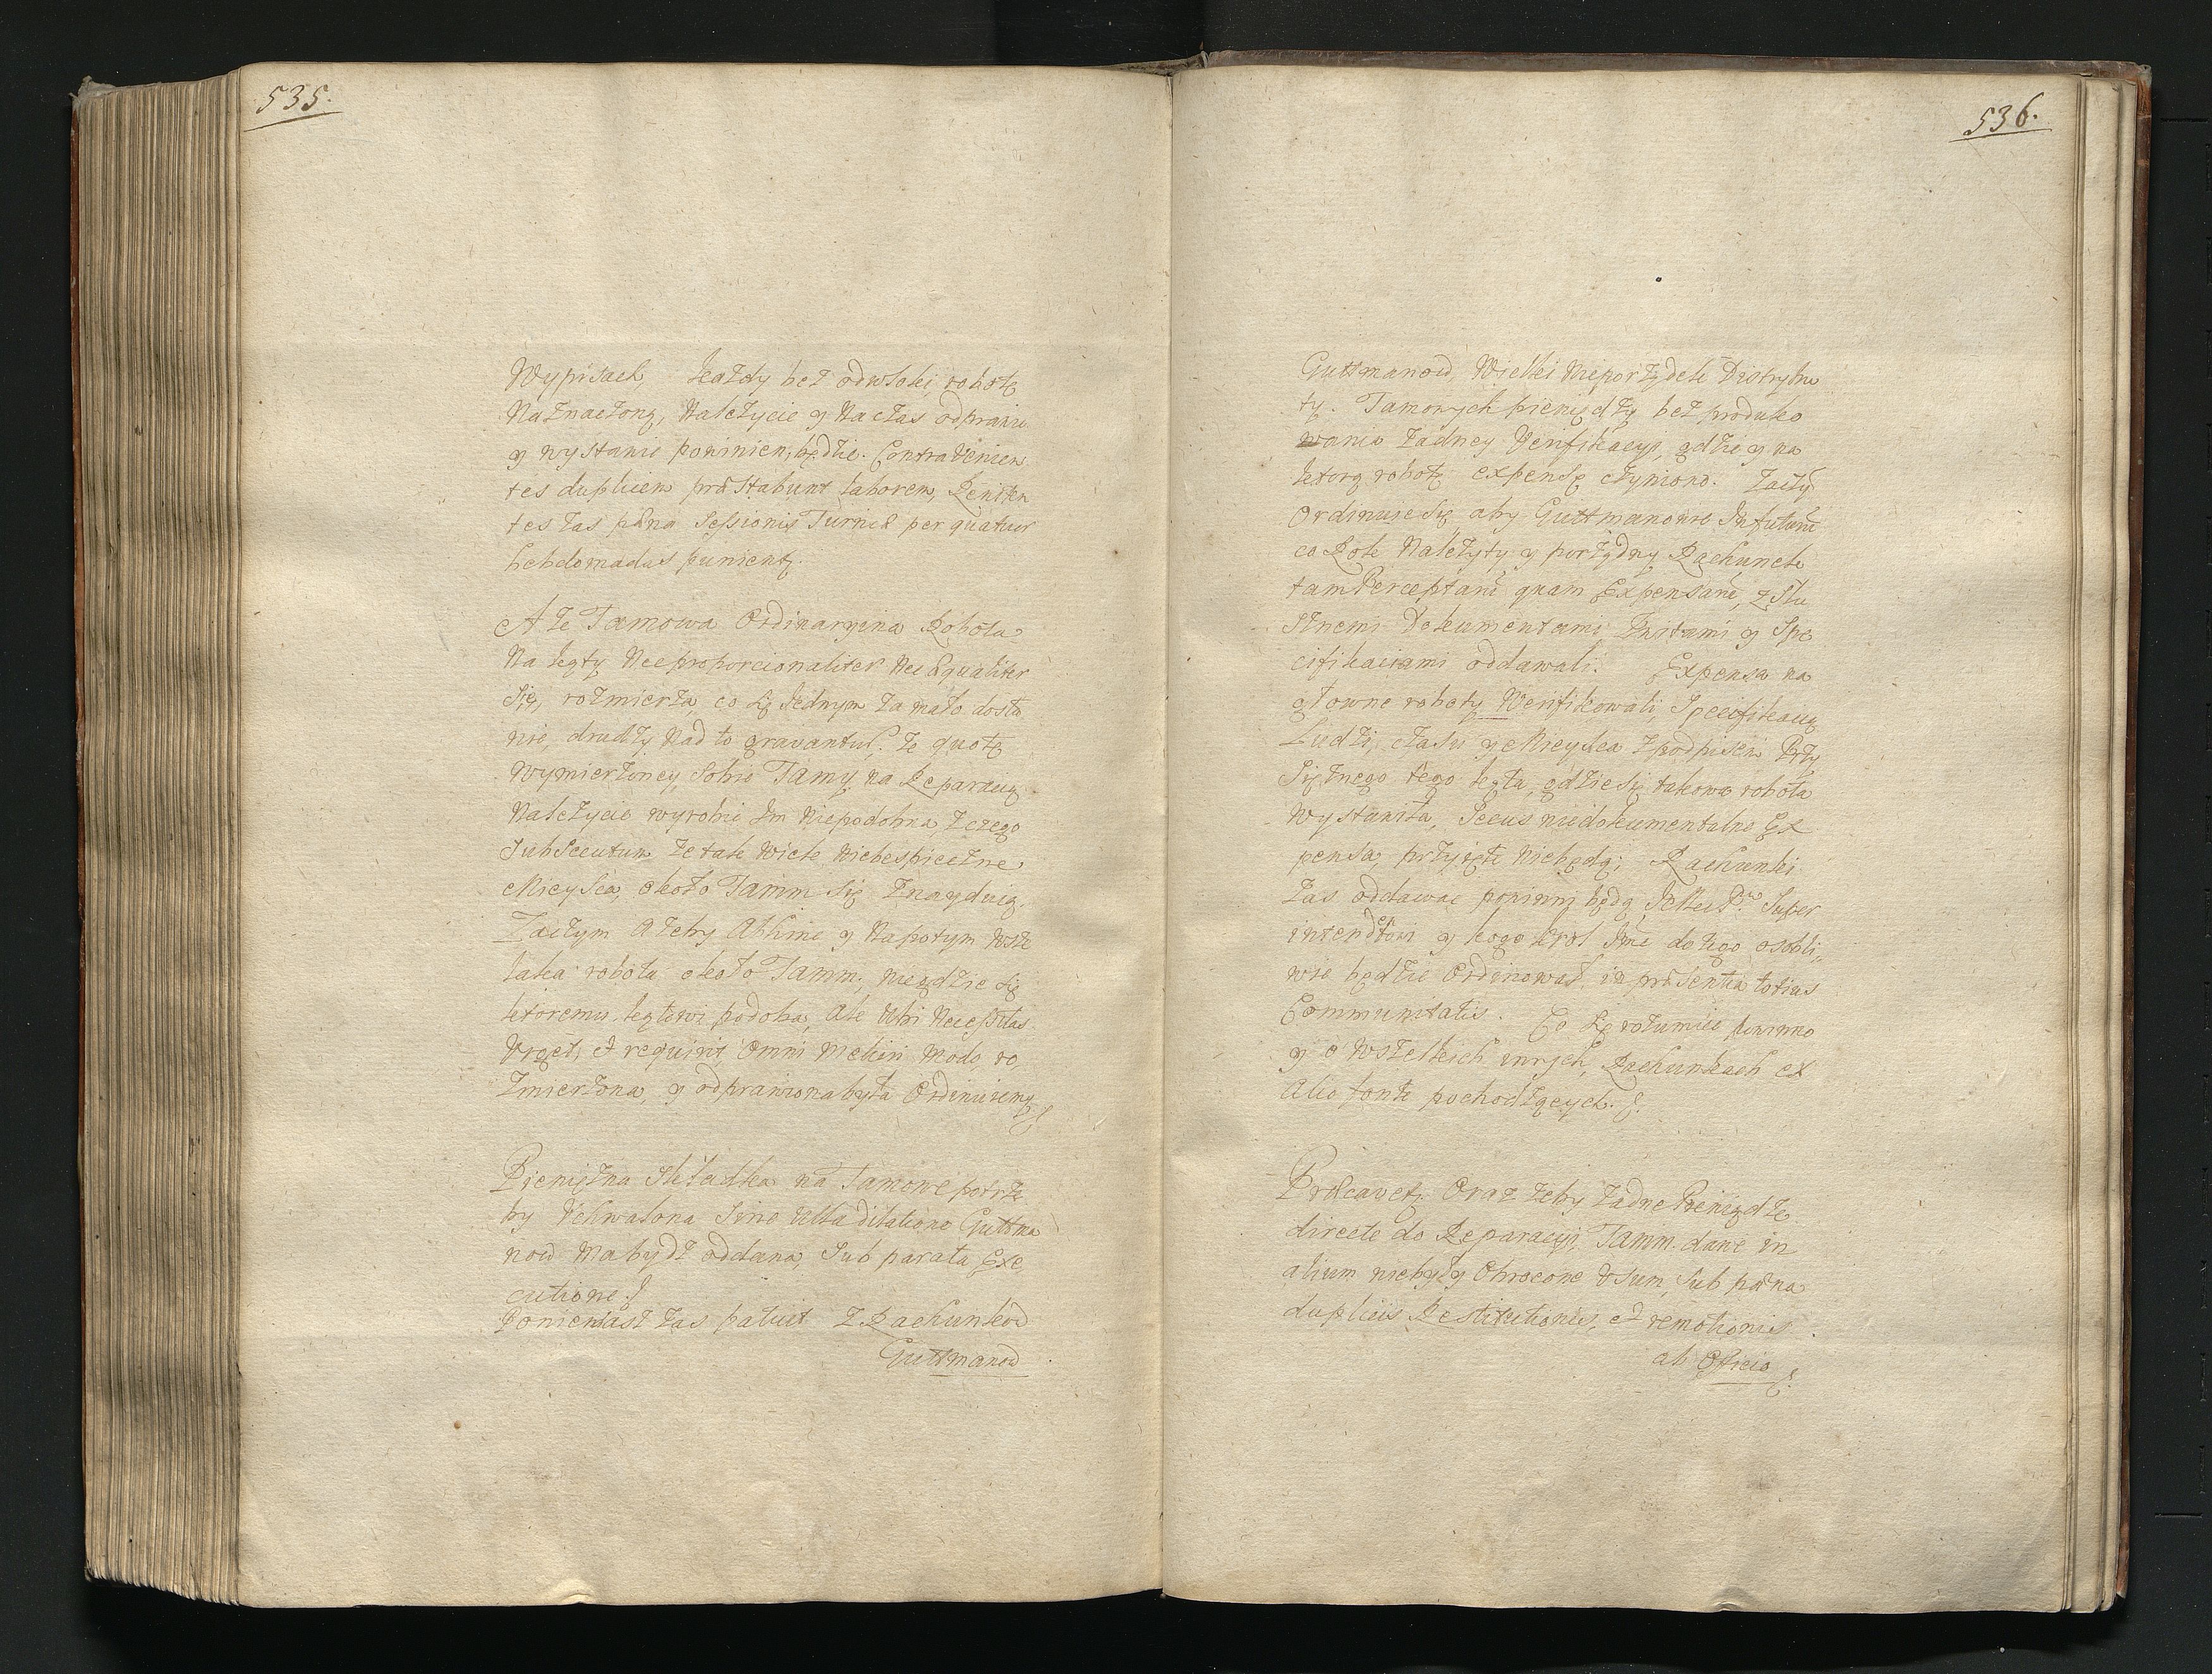 535.
Wypisach, każdy bez odwłoki, robotę
Naznaczoną, Należycie y Na czas odprawić
y wystawić powinien będzie. Contravenien
tes duplicem præstabunt laborem, Reniten
tes zas pæna Sessionis Turris per quatuor
hebdomadas punientꝗ.
A że Tamowa Ordinaryina Robota
Na kęty Nec proporcionaliter Nec Equaliter
Się, rozmierza, co Rę Jednym za mało dosta
nie, drudzy Nad to gravantur. że quotę
Wymierzoney, Sobie Tamy, na Reparacyą
Należycie wyrobić Im Niepodobna, z czego
Subsecutum że tak wiele Niebespieczne
Mieysca, około Tamm Się Znayduią.
Zaczym Ażeby Abhinc y Napotym wsze
laka robota około Tamm, niegdzie się
ktoremu kętowi podoba, Ale Ubi Necessitas
Urget, et requirit, Omni Meliori Modo, ro,
Zmierzona, y odprawiona była Ordinuiemy
Pieniężna Składka na Tamowe potrze
by Uchwalona Sine Ulla dilatione Guttma
now ma bydz oddana, Sub parata Exe,
cutione.
Poniewasz zas patuit z Rachunkow
Guttmanow
536.
Guttmanow, Wielki Nieporządek Distrybu
ty. Tamowych pieniędzy bez produko
wania żadney Verifikacyi, gdzie y na
ktorą robotę expensę czyniono. Zaczy̅
Ordinuie Się, aby Guttmanowie In futuru̅
co Rok Należyty y porządny Rachunek
tam Perceptaru̅ quam Expensaru̅, z Słu
sznemi Dokumentami, Kwitami y Spe
cifikaciami oddawali. Expensa na
głowne roboty Werifikowali, Specifikacyą
Ludzi, czasu y Mieysca z podpisem Przy
Siężnego tego kęta, gdzie Się takowa robota
Wystawiła, Secus niedokumentalne Ex
pensa, przyięte Niebędą; Rachunki
zas oddawac powinni będą, Super
intendentowi y kogo Krol Jmc do tego osobli,,
wie będzie Ordinował, in præsentia totius
Communitatis. Co Rę rozumiec powinno
y o Wszelkich innych, Rachunkach ex
Alio fonte pochodzących.
Præcavetꝗ. Oraz żeby żadne Pieniądze
directe do Reparacyi, Tamm. dane in
alium niebyły Obrocone Usum, Sub pæna
duplicis Restitutionis, et remotionis
ab Officio